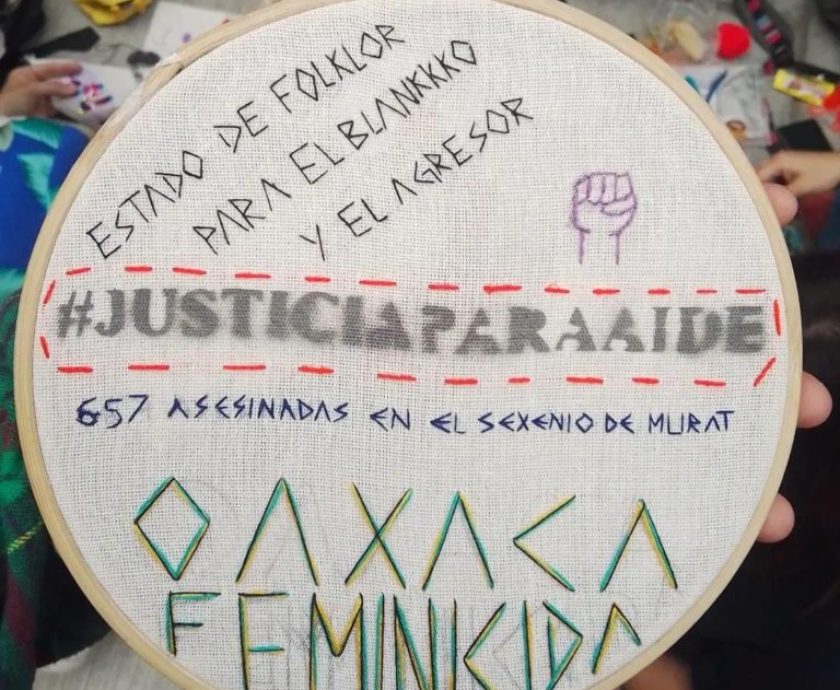 ESTADO DE FOLKLOR
PARA EL BLANKKKO
Y EL AGRESOR
#JUSTICIAPARAAIDE
657 ASESINADAS EN EL SEXENIO DE MURAT
OAXACA
FEMINICIDA